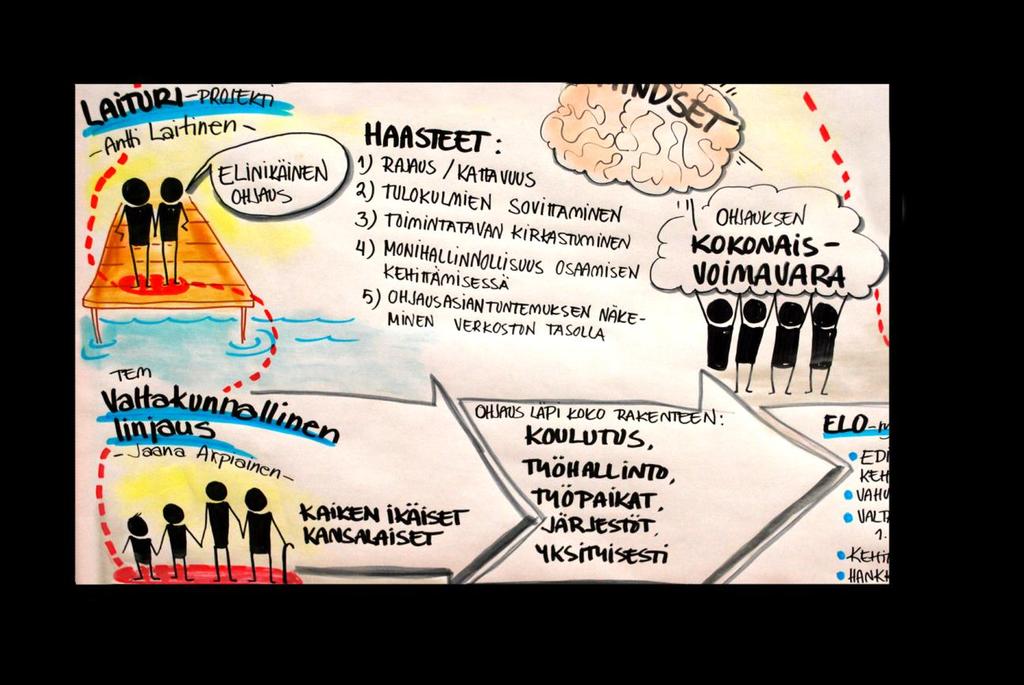 LAITURI-PROJEKTI
- Antti Laitinen -
ELINIKÄINEN
OHJAUS
HAASTEET:
1) RAJAUS / KATTAVUUS
2) TULOKULMIEN SOVITTAMINEN
3) TOIMINTATAVAN KIRKASTUMINEN
4) MONIHALLINNOLLISUUS OSAAMISEN
KEHITTÄMISESSÄ
5) OHJAUSASIANTUNTEMUKSEN NÄKE-
MINEN VERKOSTON TASOLLA
MINDSET
OHJAUKSEN
KOKONAIS-
VOIMAVARA
TEM
Valtakunnallinen
linjaus
- Jaana Arpiainen -
KAIKEN IKÄISET
KANSALAISET
OHJAUS LÄPI KOKO RAKENTEEN:
KOULUTUS,
TYÖHALLINTO,
TYÖPAIKAT,
JÄRJESTÖT,
YKSITYISESTI
ELO-
• EDI
KEH
• VAHV
• VALT
1.
• KEHIT
• HANKK